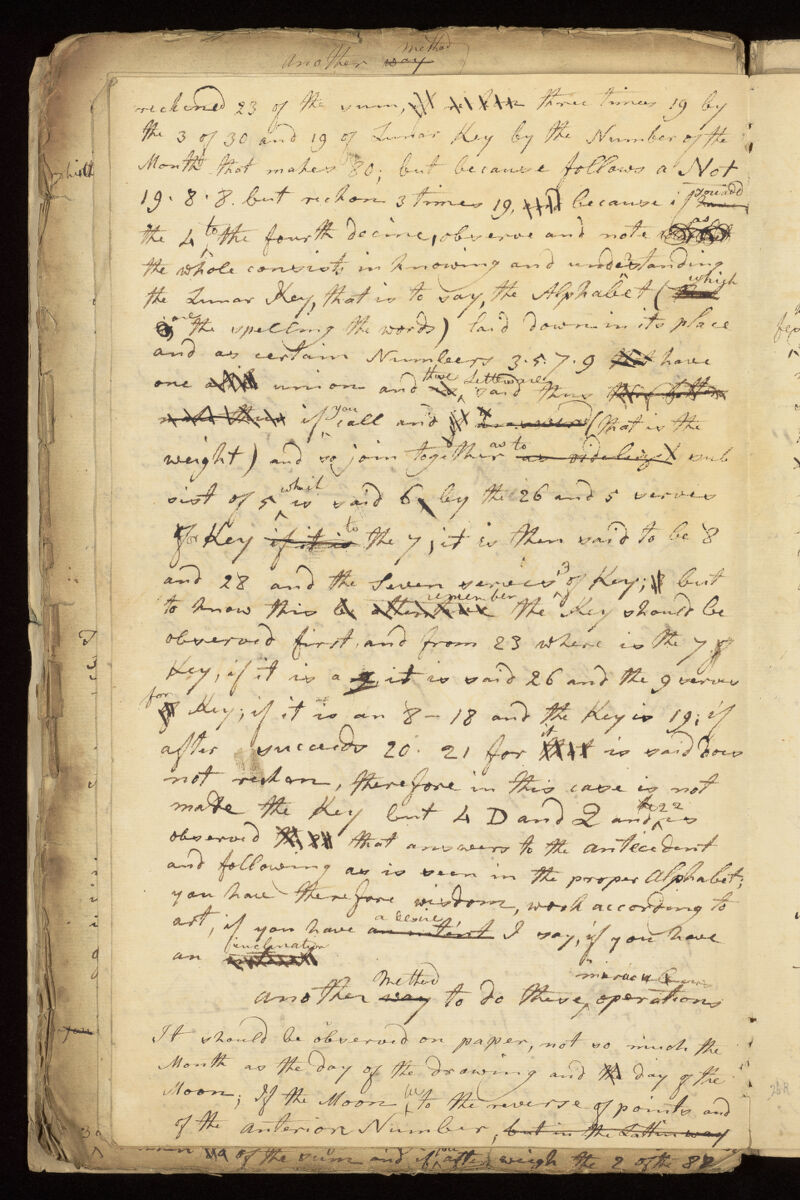 another way method
reckoned 23 of the sum, three times 19 by
the 3 of 30 and 19 of Lunar Key by the Number of the
Month that makes 80; but because follows a Not
19. 8. 8. but reckon 3 times 19, because if you add
the 4 to the fourth decine, observe and note as
the whole consists in knowing and understanding
the Lunar Key, that is to say, the Alphabet (which
are the spelling the words) laid down in its place
and as certain Numbers 3. 5. 7. 9 have
one union and those Letters are said thus
if you call and answer (that is the
weight) and so join together as to sub
sist of 5 which is said 6, by the 26 and 5 serves
for Key if it is to the 7, it is then said to be 8
and 28 and the Seven serves 3 of Key; but
to know this remember the Key should be
observed first, and from 23 where is the 7 of
Key, if it is a 9, it is said 26 and the 9 serves
for Key; if it is an 8 – 18 and the Key is 19; if
after succeeds 20. 21 for it is said does
not reckon, therefore in this case is not
made the Key but 4 D and 2 and the 22 is
observed that answers to the antecedent
and following as is seen in the proper Alphabet;
you have therefore wisdom, work according to
art, if you have an intent a desire I say, if you have
an inclination
another way Method to do these miraculous operations
It should be observed on paper, not so much the
Month as the day of the drawing and the day of the
Moon; If the Moon is to the reverse of points and
of the anterior Number, but in the Latin way
of the sum and if you after weigh the 2 of the 82